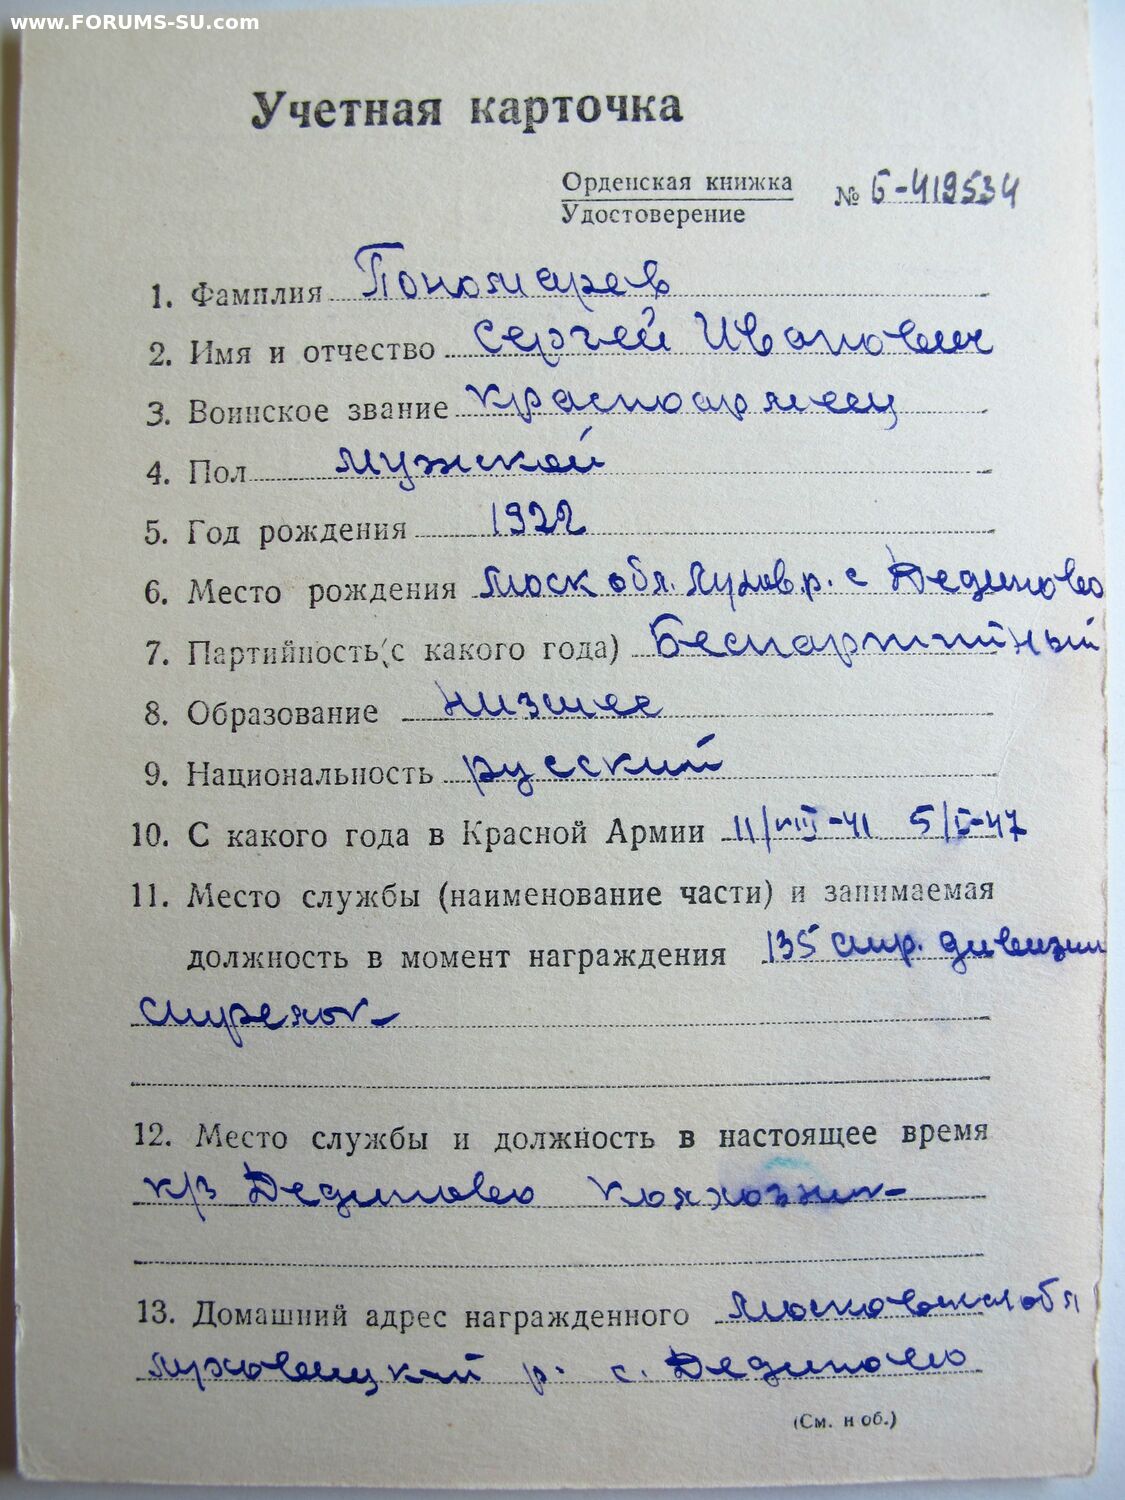 www.FORUMS-SU.com
Учетная карточка
Орденская книжка
Удостоверение
№ Б-419534
1. Фамилия Пономарев
2. Имя и отчество Сергей Иванович
3. Воинское звание Красноармеец
4. Пол мужской
5. Год рождения 1922
6. Место рождения Моск обл. Лухов. р. с Дединово
7. Партийность (с какого года) Беспартийный
8. Образование низшее
9. Национальность русский
10. С какого года в Красной Армии 11/VIII-41 5/I-47
11. Место службы (наименование части) и занимаемая
должность в момент награждения 135 стр. дивизии
стрелок
12. Место службы и должность в настоящее время
к/з Дединово Колхозник
13. Домашний адрес награжденного Московская обл
Луховицкий р. с. Дединово
(См. н об.)